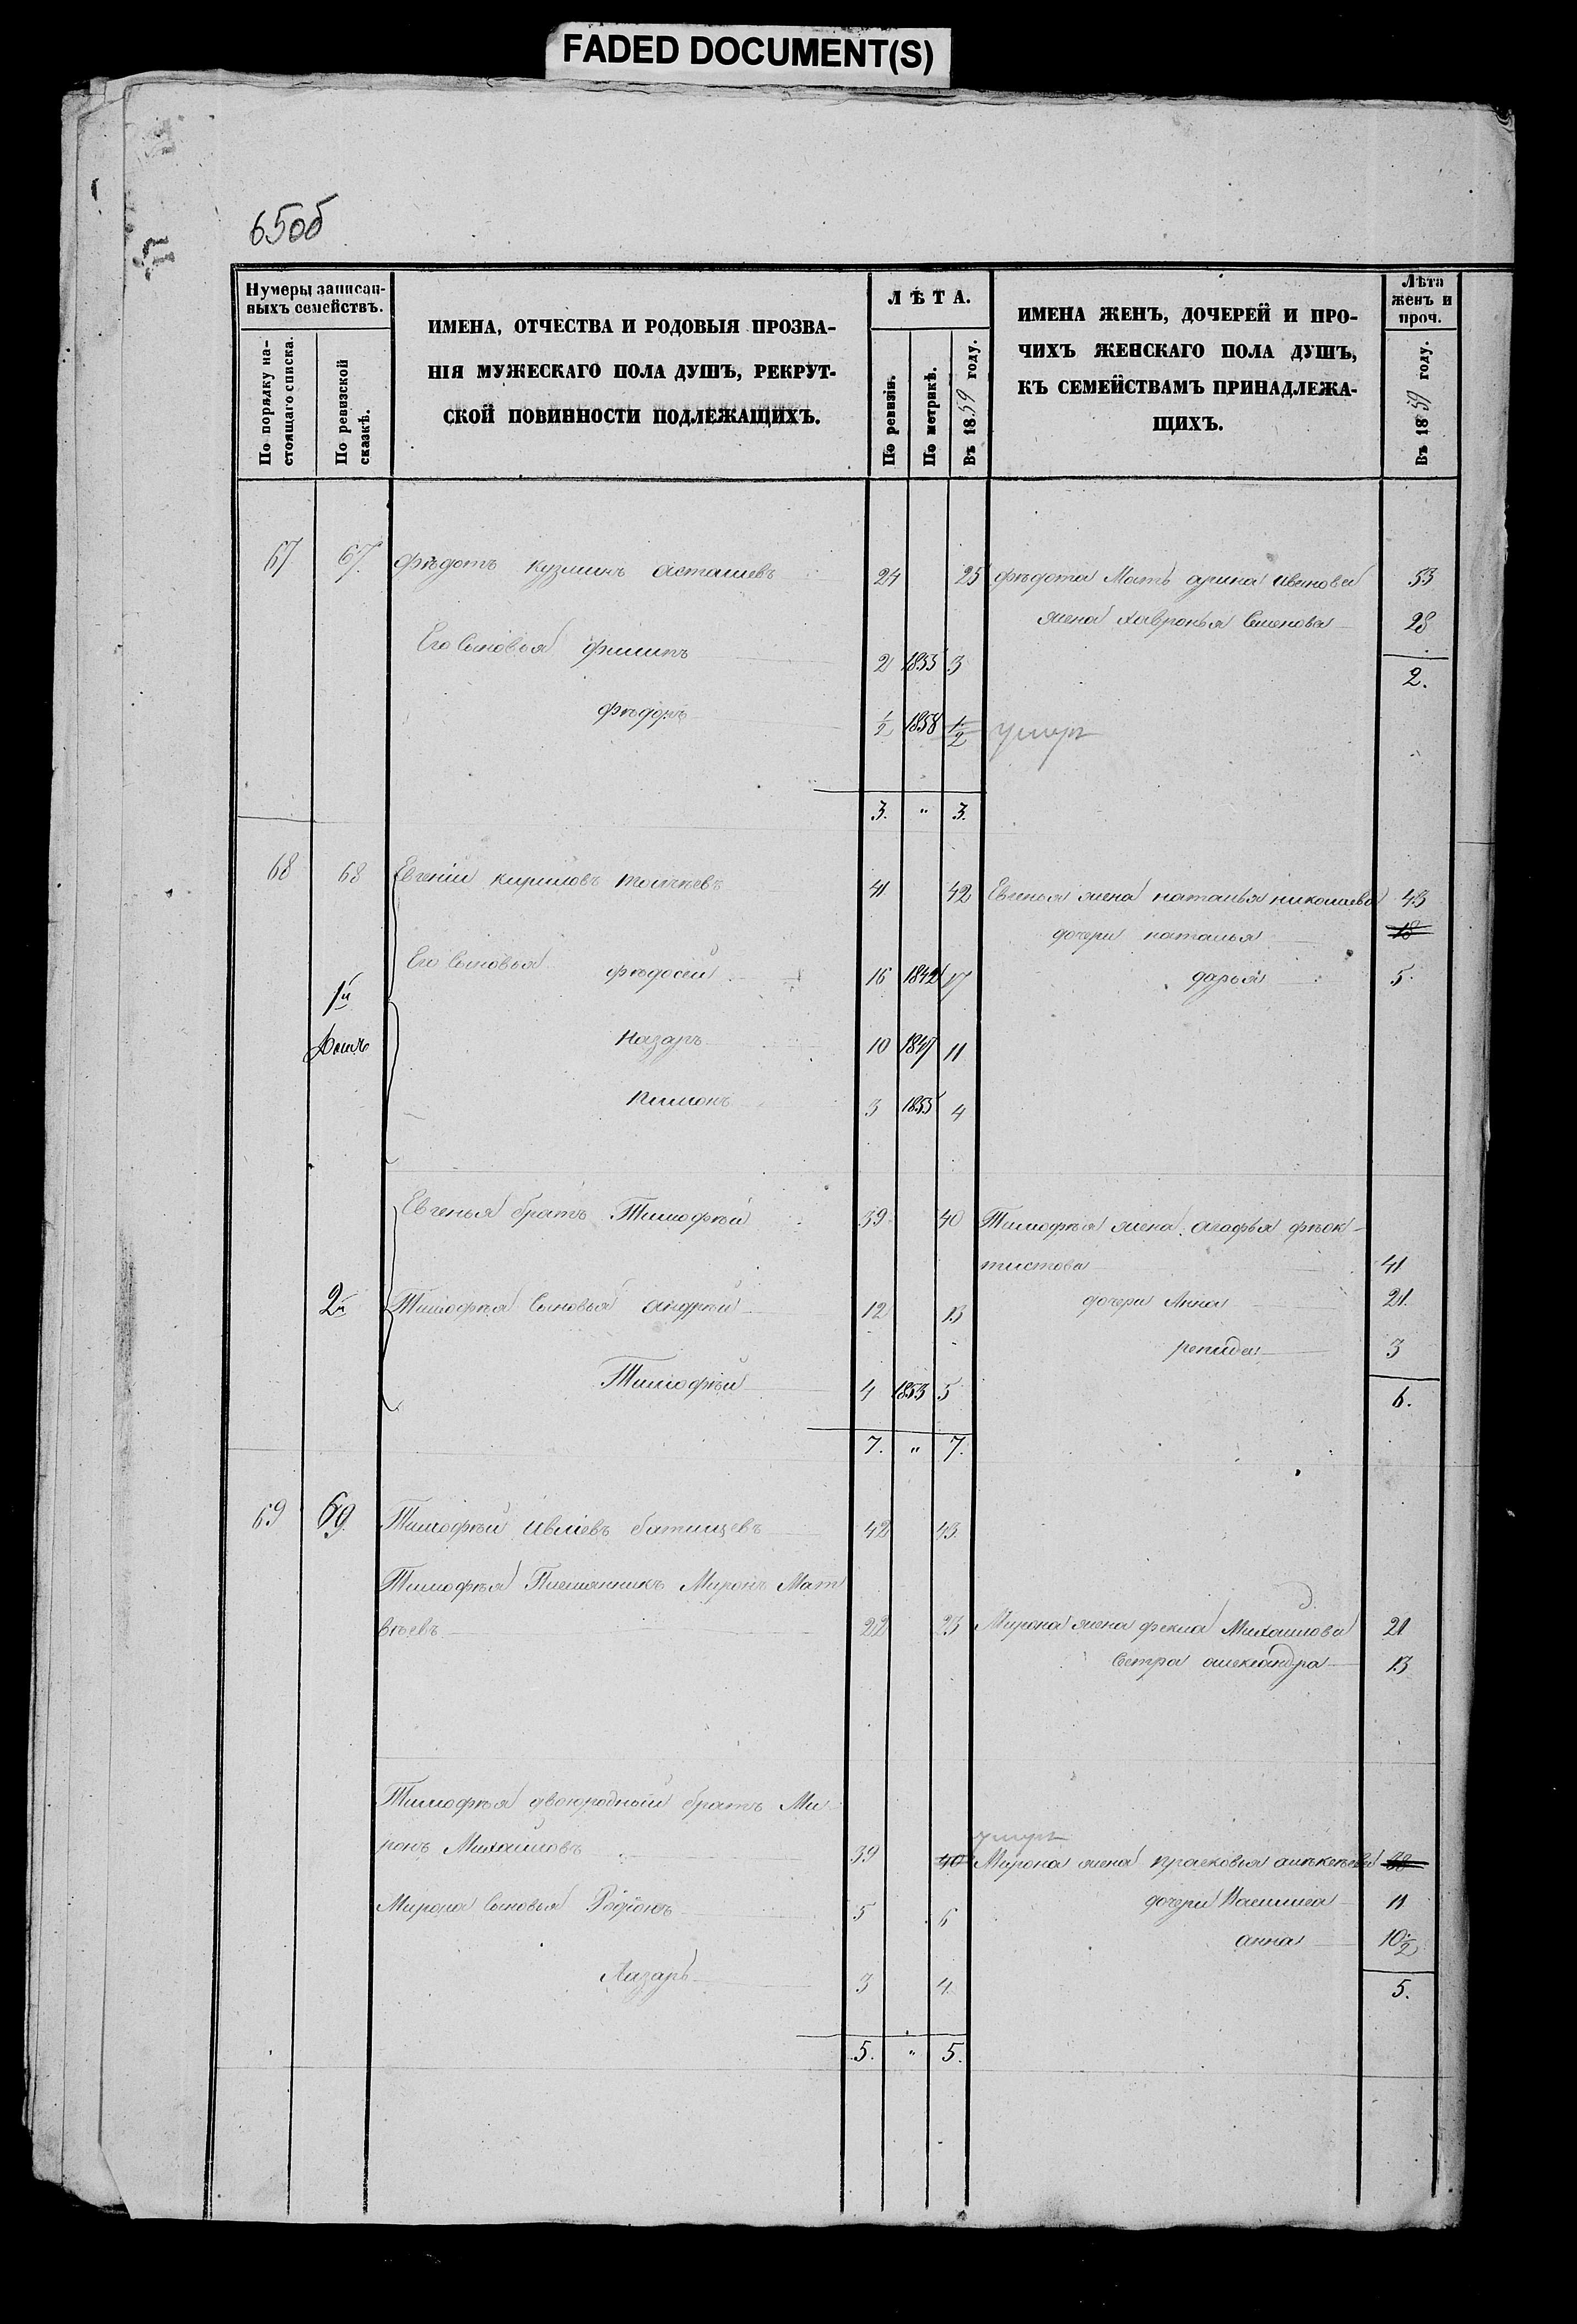 FADED DOCUMENT(S)
65об
Нумеры записан-
ныхъ семействъ.
По порядку на-
стоящаго списка.
По ревизской
сказкѣ.
ИМЕНА, ОТЧЕСТВА И РОДОВЫЯ ПРОЗВА-
НІЯ МУЖЕСКАГО ПОЛА ДУШЪ, РЕКРУТ-
СКОЙ ПОВИННОСТИ ПОДЛЕЖАЩИХЪ.
ЛѢТА.
По ревизіи.
По метрикѣ.
Въ 1859 году.
ИМЕНА ЖЕНЪ, ДОЧЕРЕЙ И ПРО-
ЧИХЪ ЖЕНСКАГО ПОЛА ДУШЪ,
КЪ СЕМЕЙСТВАМЪ ПРИНАДЛЕЖА-
ЩИХЪ.
Лѣта
женъ и
проч.
Въ 1859 году.
67 67. Фѣдотъ Кузминъ Асташевъ 24 25 Фѣдота Мать арина Иванова 53
жена Хавронья Семенова 28
Его Сыновья Филипъ 2 1855 3
2.
Фѣдоръ 1/2 1858 1/2 умеръ
3. " 3.
68 68 Евгеній Кириловъ 41 42 Евгенья жена наталья николаева 43
дочери наталья 18
Его Сыновья Фѣдосей 16 1842 17 дарья 5.
1й
Назаръ 10 1847 11
3 1855 4
Евгенья братъ Тимофѣй 39 40 Тимофѣя жена агафья фѣок-
тистова 41
2й Тимофѣя Сыновья андрѣй 12 13 дочери Анна 21.
3
Тимофѣй 4 1853 5
6.
7. " 7.
69 69. Тимофѣй Ивлевъ батищевъ 42 43
Тимофѣя Племянникъ Миронъ Мат
вѣевъ 22 23 Мирона жена фекла Михаилова 21
Сестра александра 13
Тимофѣя двоюродный братъ Ми
умеръ
ронъ Михаиловъ 39 40 Мирона жена прасковья алѣксѣева 38
Мирона Сыновья Родіонъ 5 6 дочери Василиса 11
анна 10 1/2
Лазарь 3 4
5.
5. " 5.